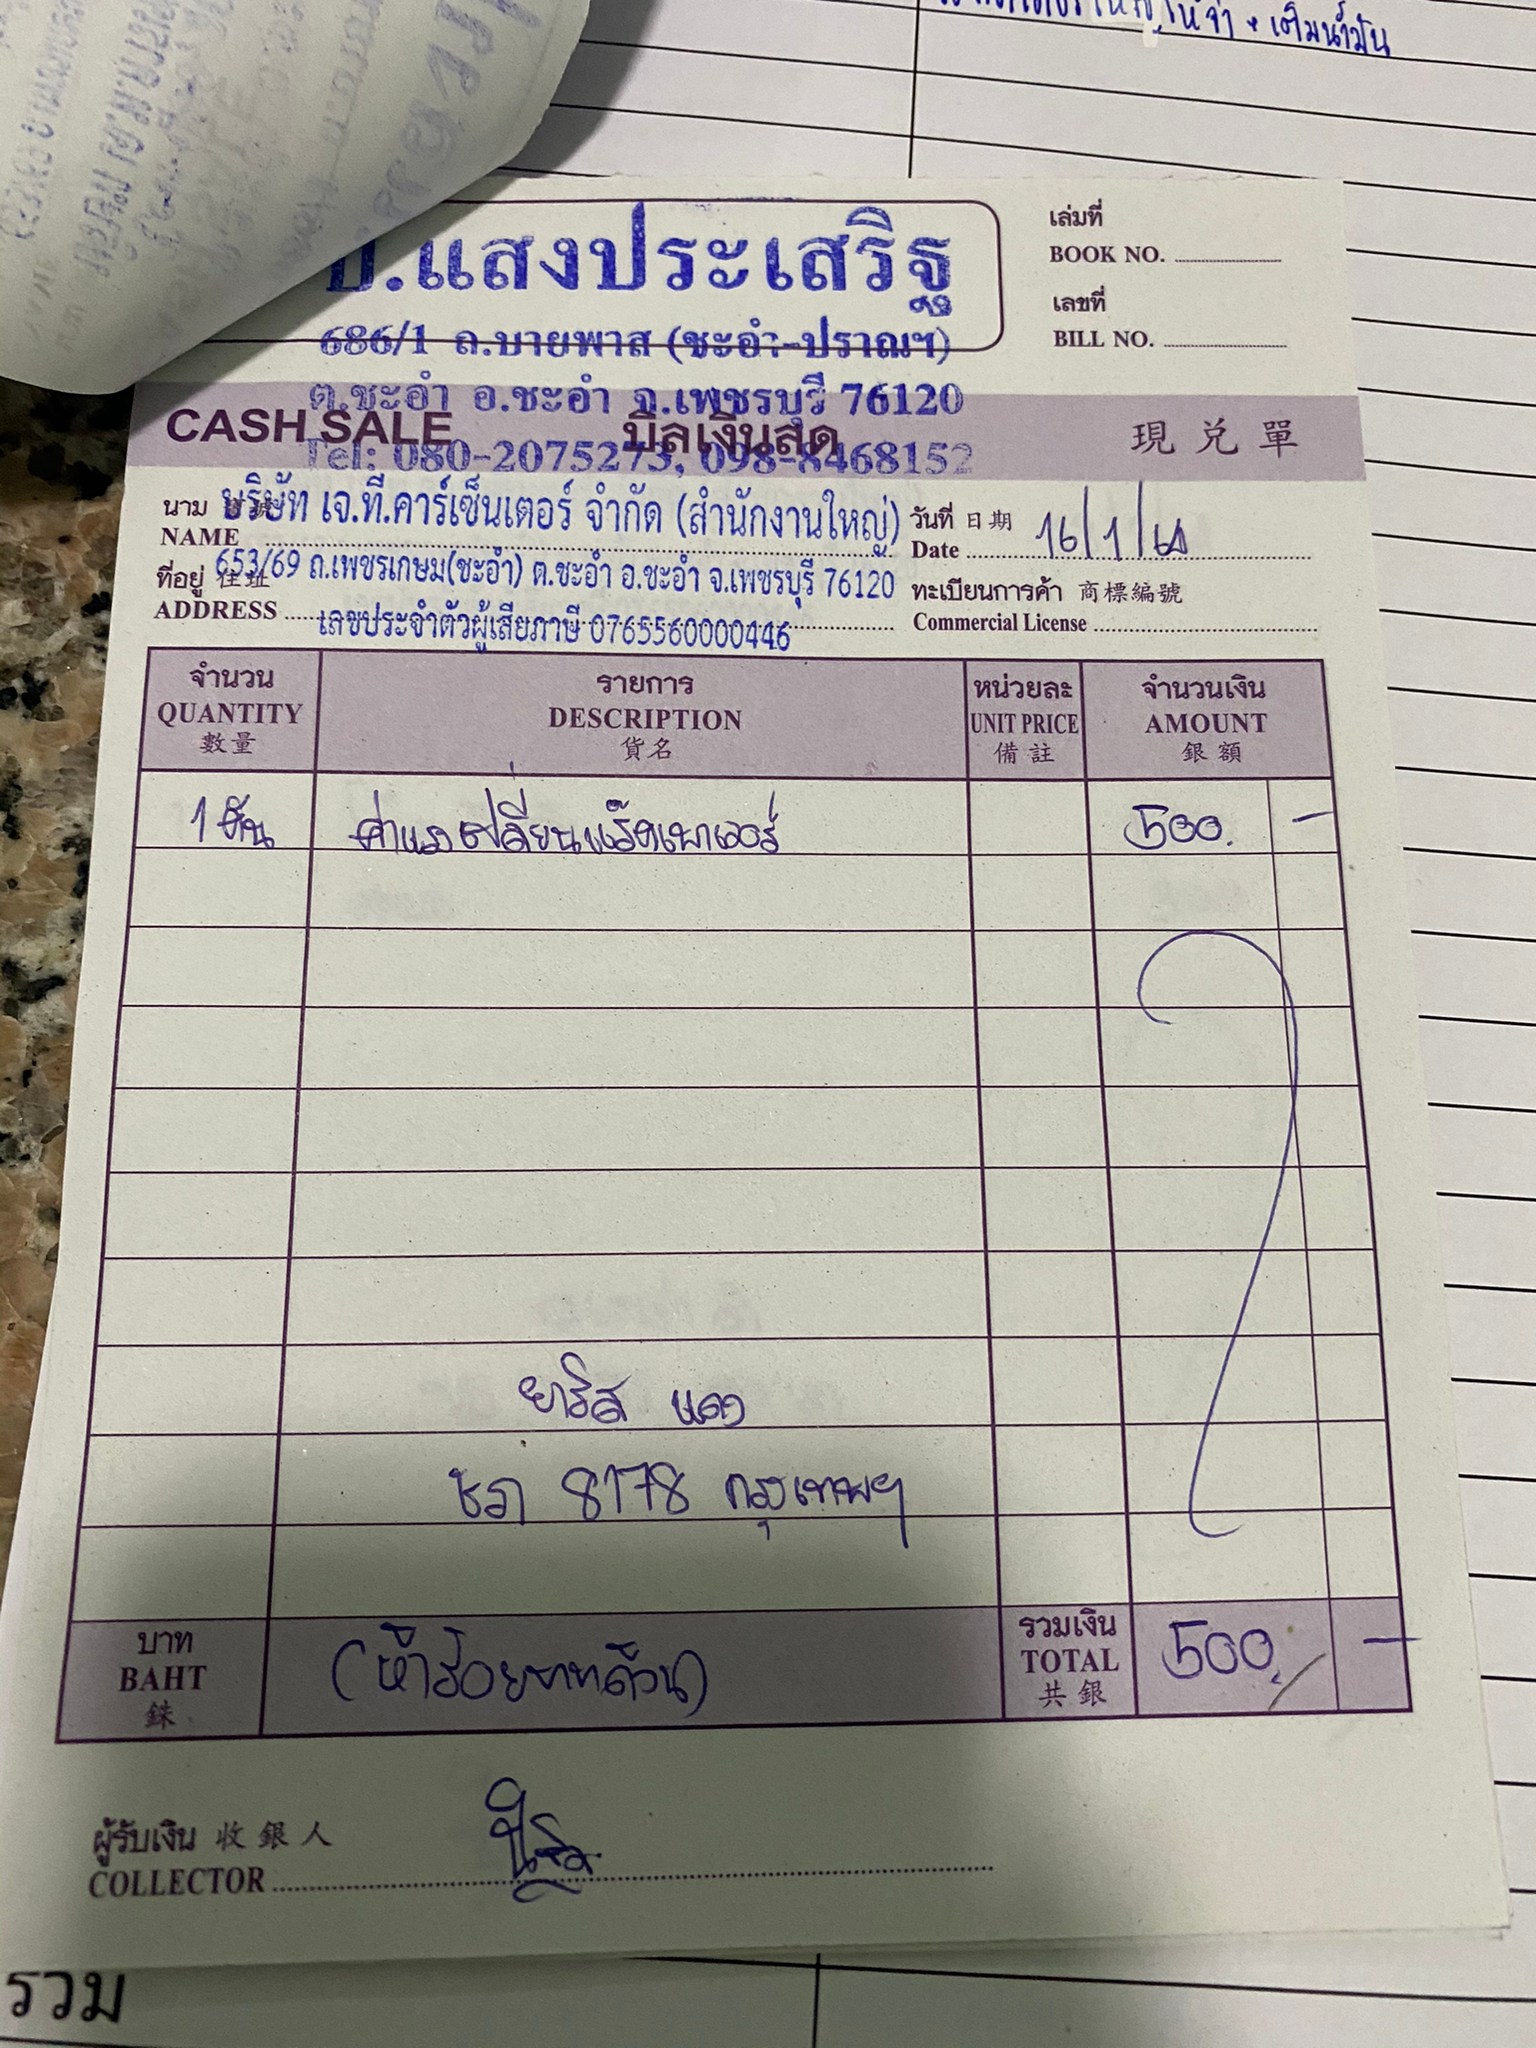 เติมน้ำมัน
.แสงประเสริฐ
686/1 ถ.บายพาส (ชะอำ-ปราณฯ)
ต.ชะอำ อ.ชะอำ จ.เพชรบุรี 76120
Tel: 080-2075273, 098-8468152
เล่มที่
BOOK NO.
เลขที่
BILL NO.
CASH SALE บิลเงินสด 現兌單
นาม NAME บริษัท เจ.ที.คาร์เซ็นเตอร์ จำกัด (สำนักงานใหญ่)
วันที่ 日期 Date 16/1/
ที่อยู่ 住址 ADDRESS 653/69 ถ.เพชรเกษม(ชะอำ) ต.ชะอำ อ.ชะอำ จ.เพชรบุรี 76120
เลขประจำตัวผู้เสียภาษี 0765560000446
ทะเบียนการค้า 商標編號
Commercial License
จำนวน รายการ หน่วยละ จำนวนเงิน
QUANTITY DESCRIPTION UNIT PRICE AMOUNT
數量 貨名 備註 銀額
1 คัน ค่าแรงเปลี่ยนแร็คเพาเวอร์ 500. -
ยาริส แดง
8178 กรุงเทพฯ
บาท BAHT 銖 (ห้าร้อยบาทถ้วน) รวมเงิน TOTAL 共銀 500. -
ผู้รับเงิน 收銀人
COLLECTOR
รวม